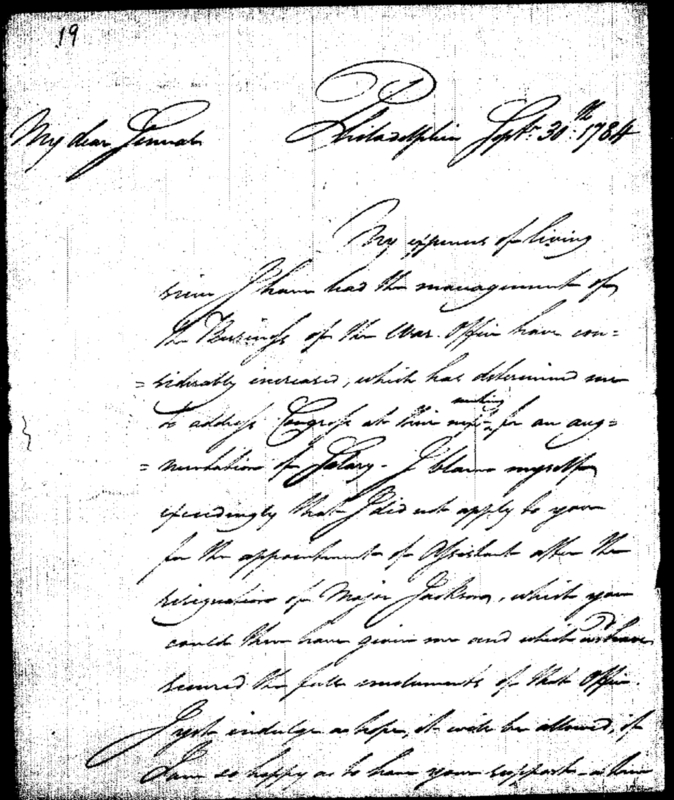 19
Philadelphia Sept. 30th 1784
My dear General
My expences of living
since I have had the management of
the Business of the War Office have con=
=siderably increased, which has determined me
to address Congress at their next meeting for an aug=
=mentation of Salary. I blame myself
exceedingly that I did not apply to you
for the appointment of Assistant after the
resignation of Major Jackson, which you
could then have given me and which wd have
secured the full emoluments of that Office.
I yet indulge a hope, it will be allowed, if
I am so happy as to have your support - a line